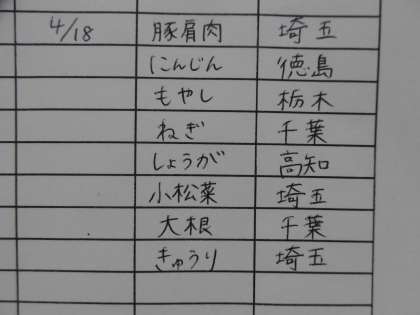 4/18 豚肩肉 埼玉
にんじん 徳島
もやし 栃木
ねぎ 千葉
しょうが 高知
小松菜 埼玉
大根 千葉
きゅうり 埼玉